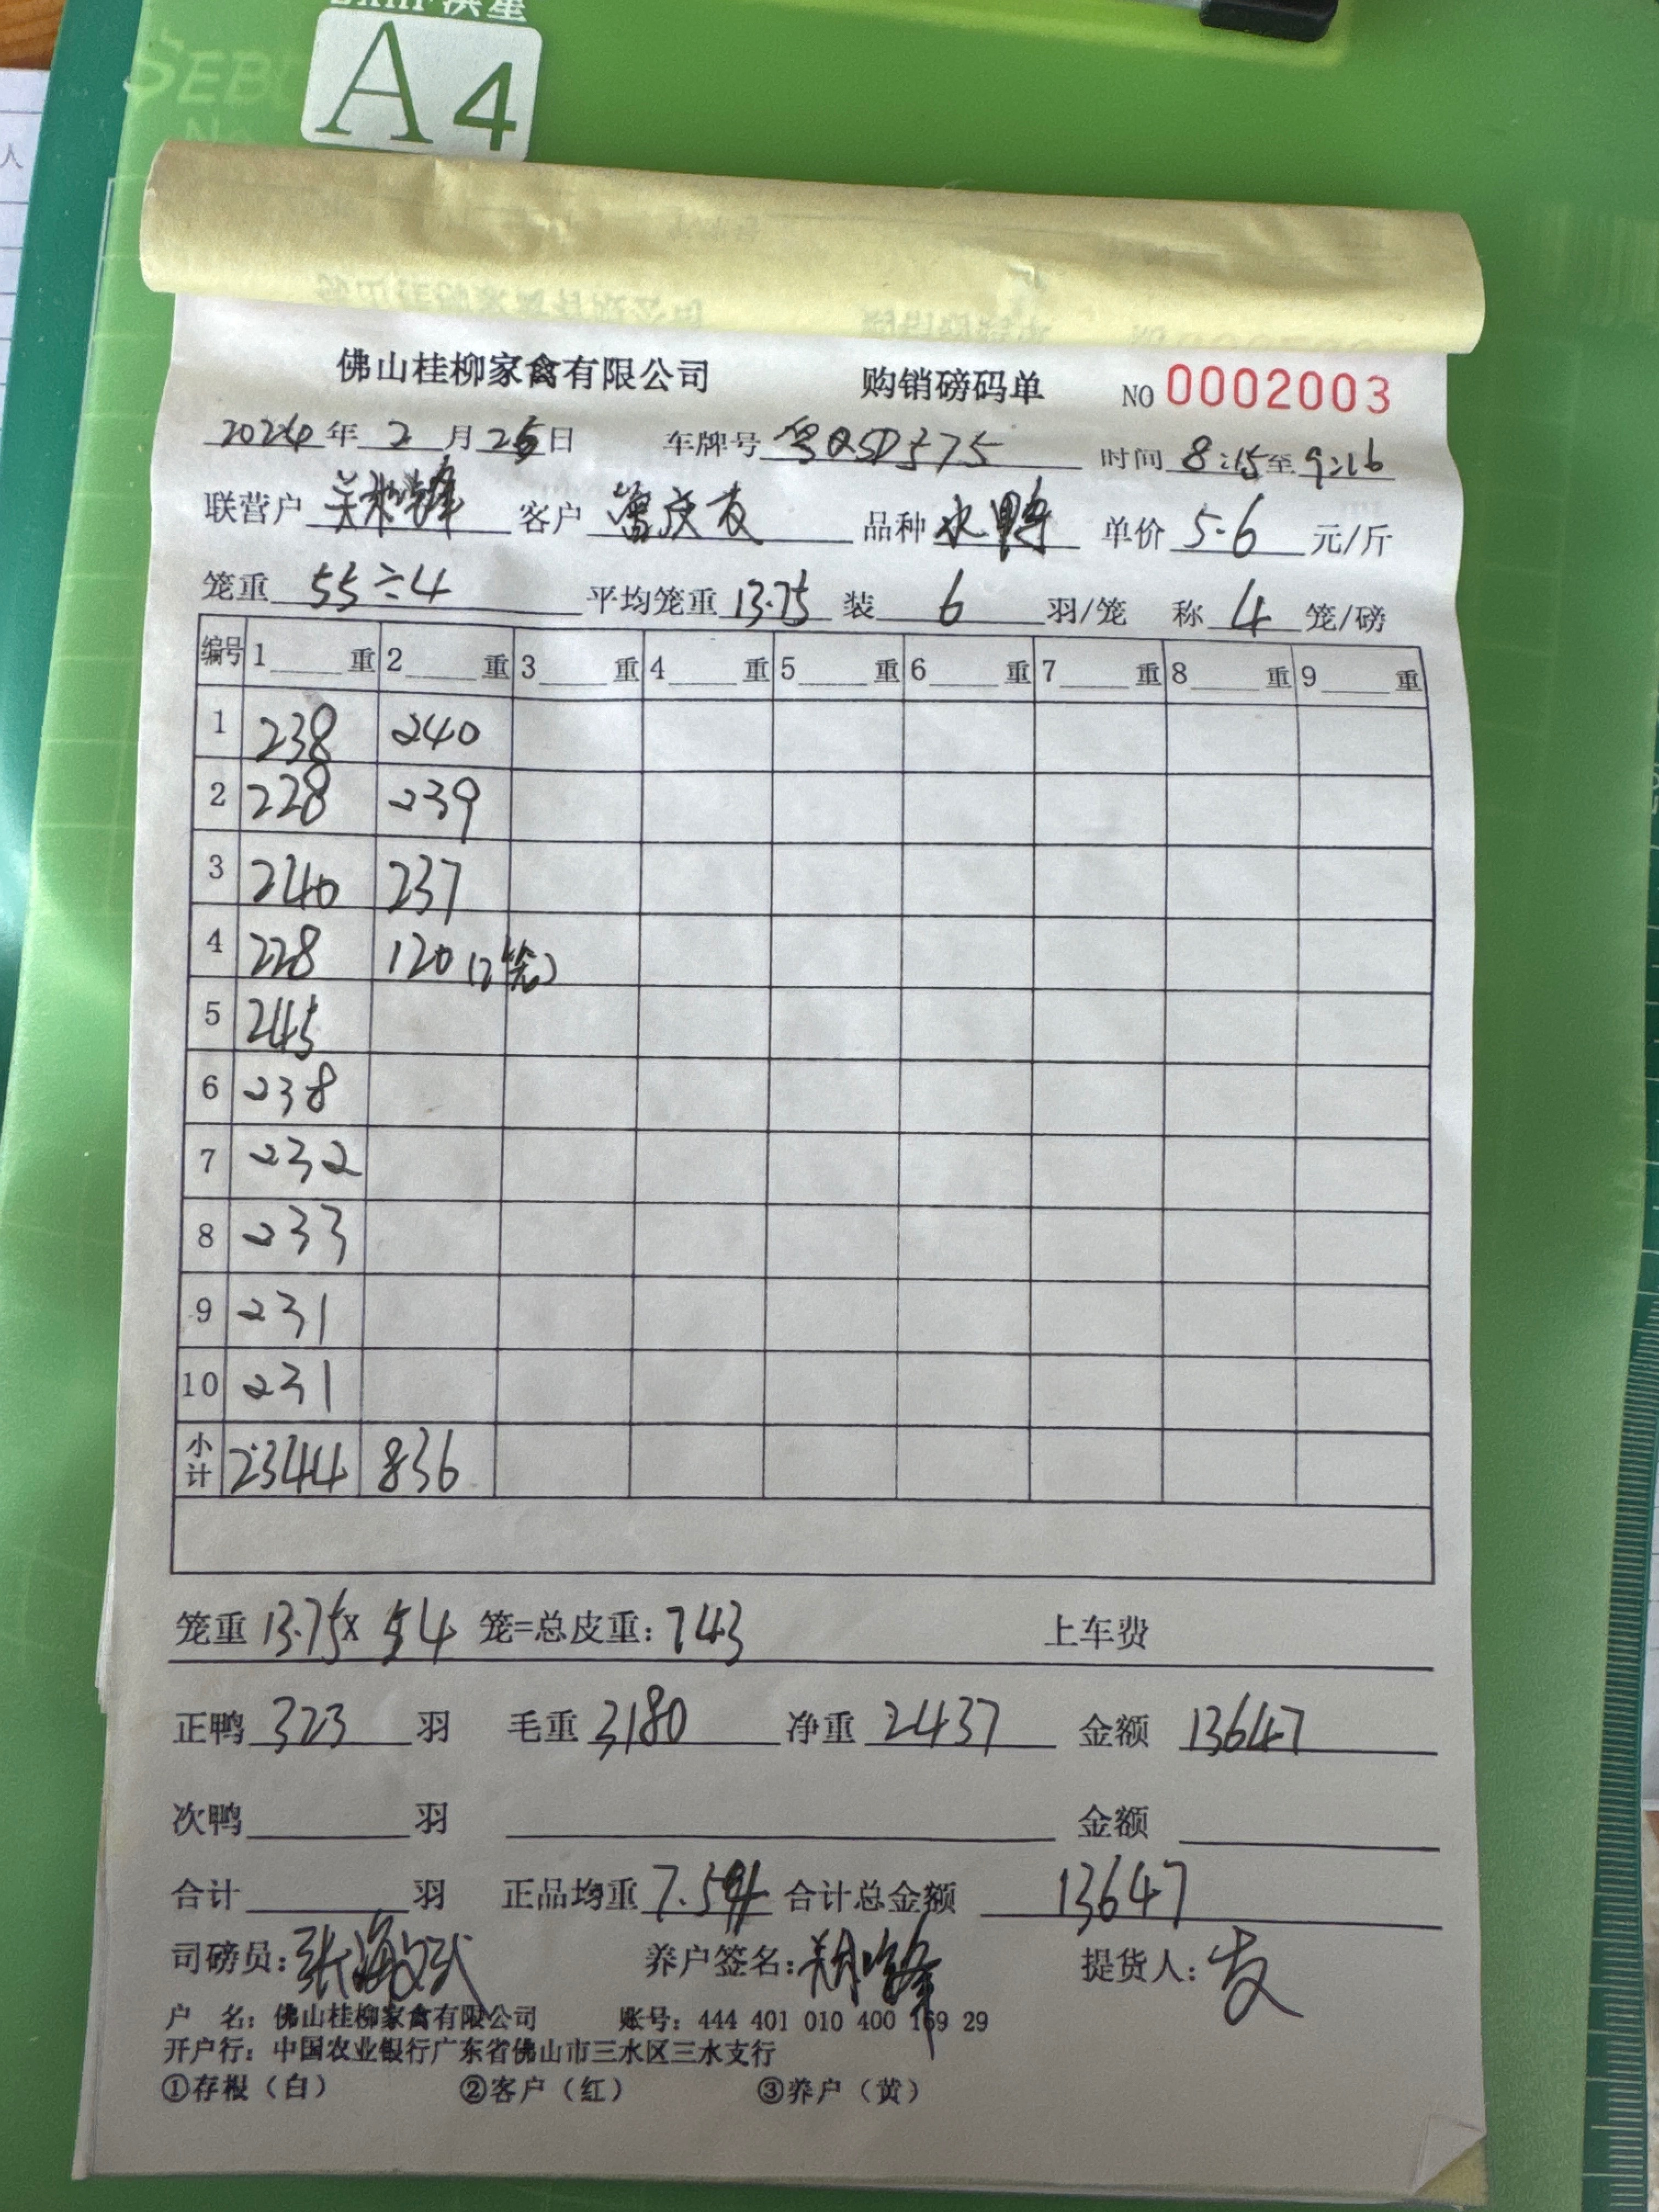 A4
佛山桂柳家禽有限公司 购销磅码单 NO 0002003
2024年 2 月 25 日 车牌号 粤QSD575 时间 8:15至9:16
联营户 客户 品种 水鸭 单价 5.6 元/斤
笼重 55÷4 平均笼重 13.75 装 6 羽/笼 称 4 笼/磅
编号 1 重 2 重 3 重 4 重 5 重 6 重 7 重 8 重 9 重
1 238 240
2 228 239
3 240 237
4 228 120(2笼)
5 245
6 238
7 232
8 233
9 231
10 231
小计 2344 836
笼重 13.75X 54 笼=总皮重:743 上车费
正鸭 323 羽 毛重 3180 净重 2437 金额 13647
次鸭 羽 金额
合计 羽 正品均重 7.54 合计总金额 13647
司磅员: 养户签名: 提货人:友
户 名: 佛山桂柳家禽有限公司 账号: 444 401 010 400 169 29
开户行: 中国农业银行广东省佛山市三水区三水支行
①存根（白） ②客户（红） ③养户（黄）